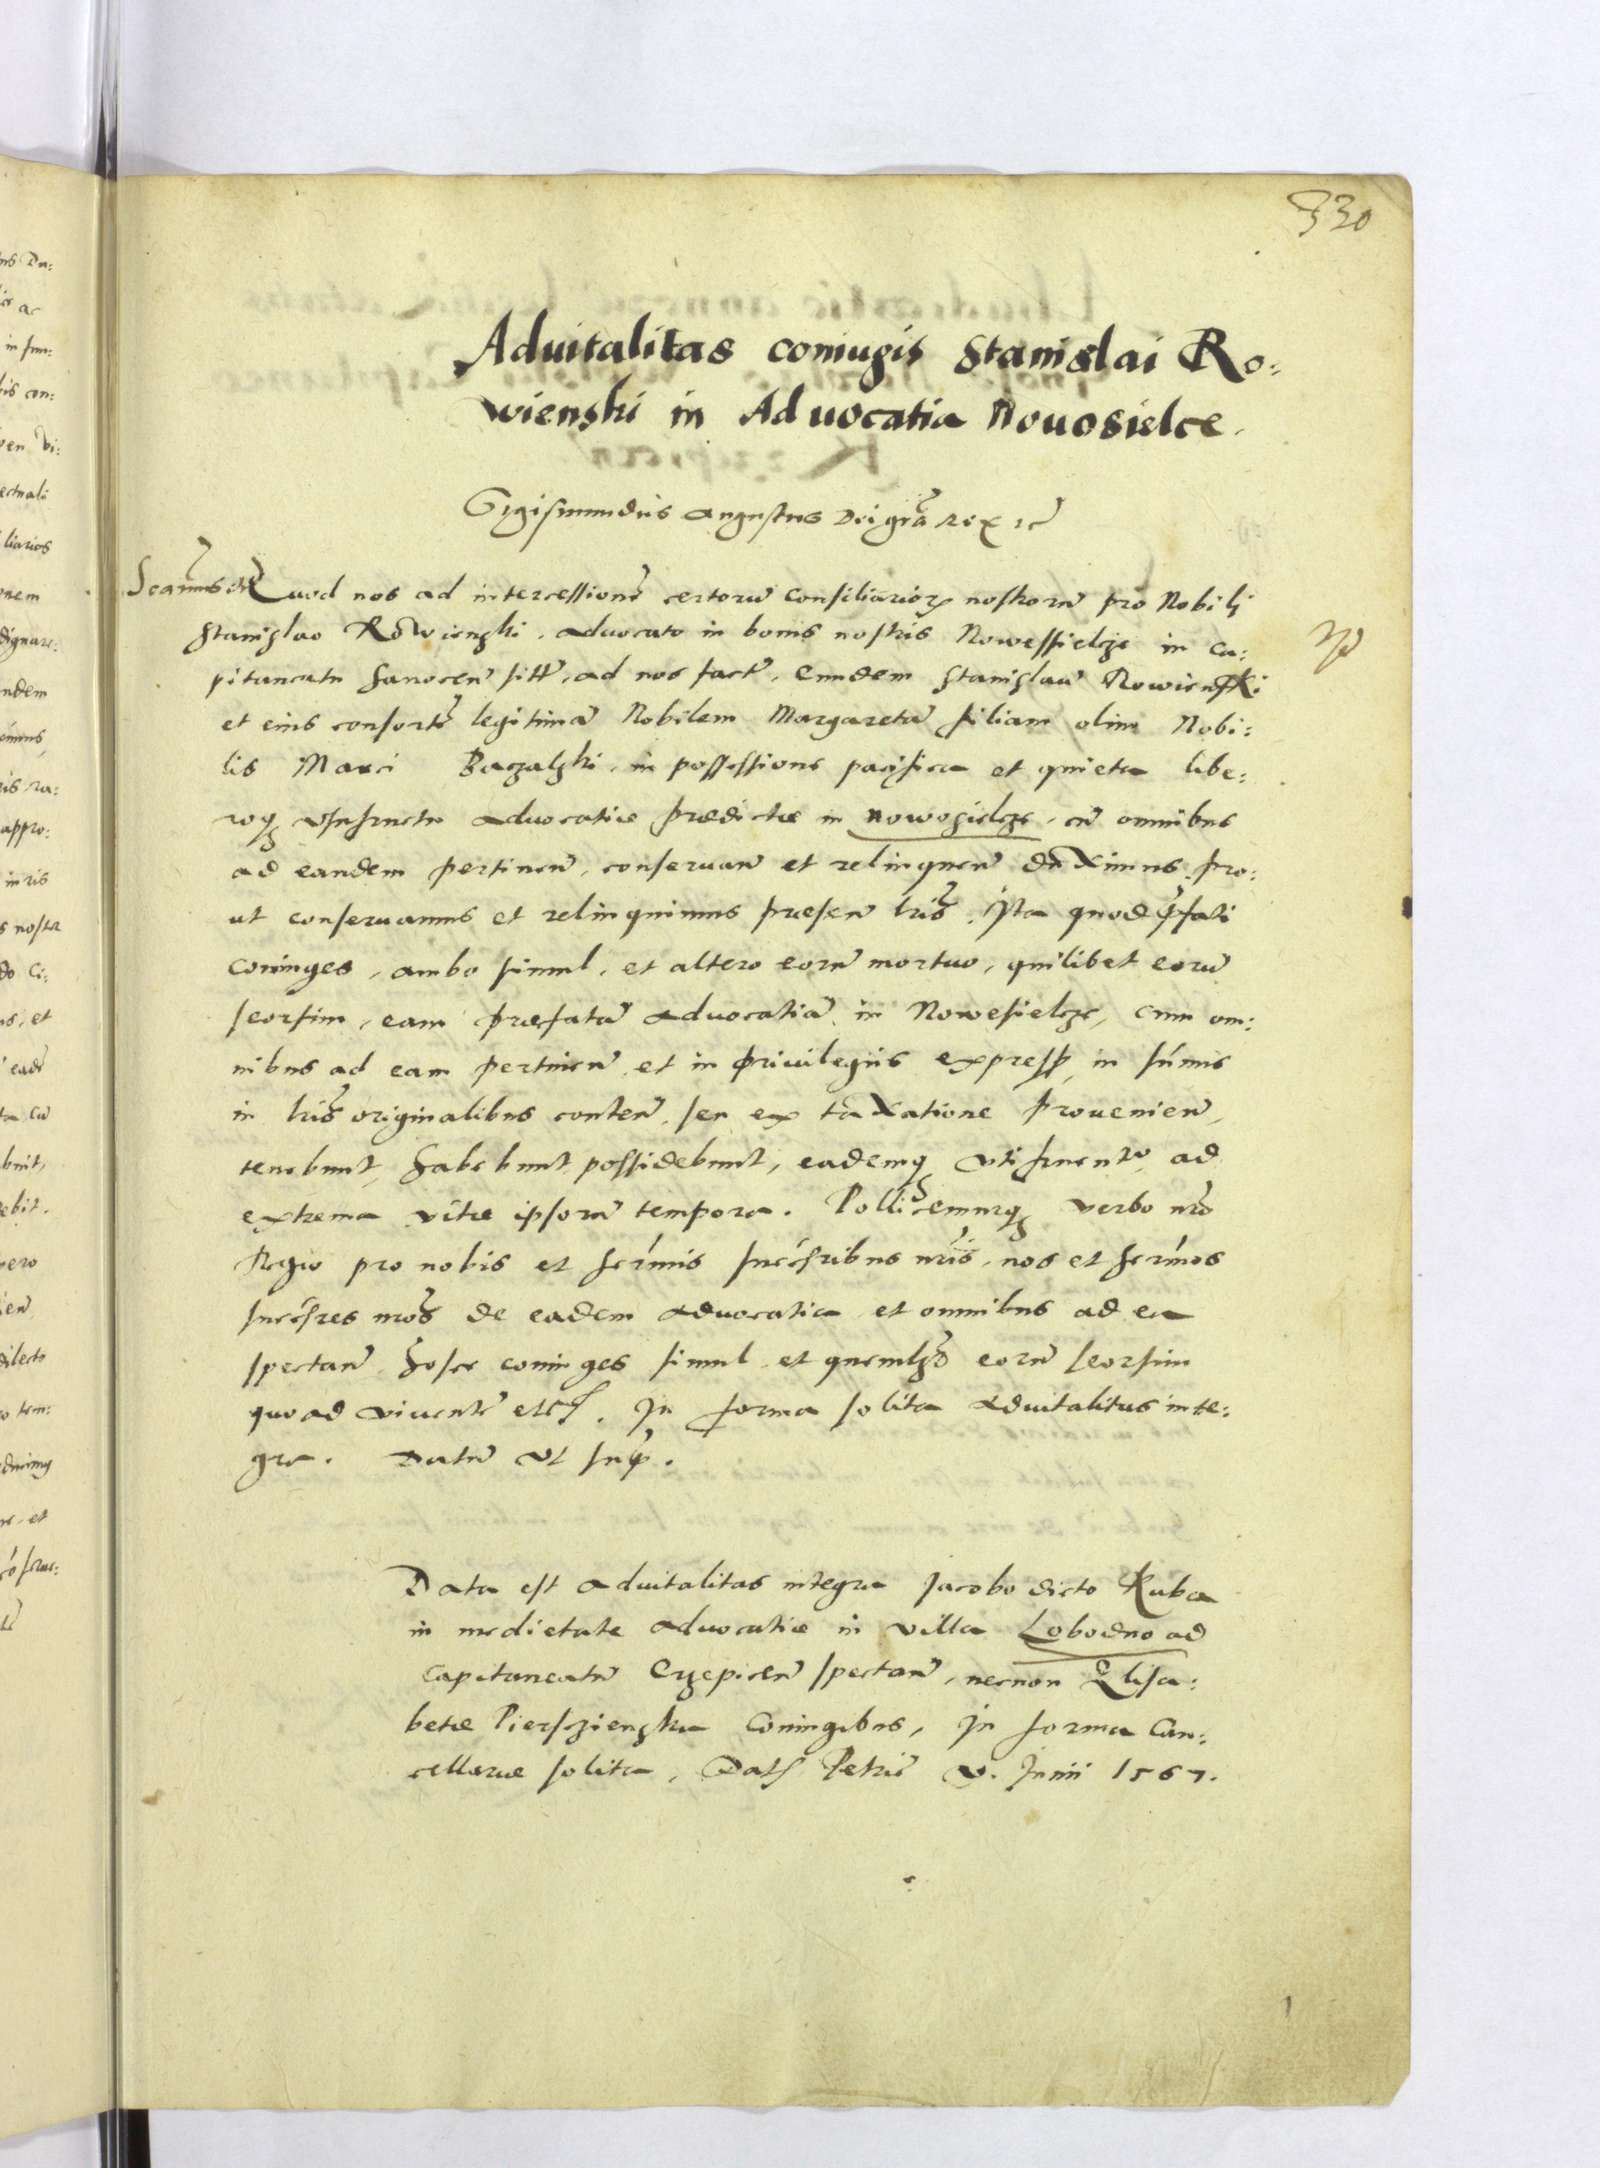 330
Aduitalitas coniugis Stanislai Ro:
wienski in Aduocatia Nouosielce.
Sigismundus Augustus Dei gra Rex
Quod nos ad intercessione certoru Consiliarior nostroru pro Nobili
Stanislao Rowienski, aduocato in bonis nostris Nowessielcze in Ca:
pitaneatu Sanocen sitt, ad nos fact, Eundem Stanislau Rowienski
et eius consorte legitima Nobilem Margareta filiam olim Nobi:
lis Marci Baczalski, in possessione pacifica et quieta libe:
roq vsufructu aduocatiæ prædictæ in Nowosielcze, cu omnibus
ad eandem pertinen, conseruan et relinquen duximus, pro:
ut conseruamus et relinquimus præsen lris. Ita quod pfati
Coniuges, ambo simul, et altero eoru mortuo, quilibet eoru
seorsim, eam præfata aduocatia in Nowesielcze, cum om:
nibus ad eam pertinen, et in priuilegiis express, in sumis
in lris originalibus conten, seu ex taxatione prouenien,
tenebunt, habebunt, possidebunt, eademq vti fruentr, ad
extrema vitæ ipsoru tempora. Pollicemurq verbo nro
Regio pro nobis et sermis succesribus nris, nos et sermos
succesres nros de eadem aduocatia et omnibus ad ea
spectan, hosce coniuges simul et quemlibet eoru seorsim
quoad viuent etc. In forma solita aduitalitas inte:
gra. Datu vt sup.
Data est aduitalitas integra Jacobo dicto Kuba
in medietate aduocatiæ in villa Lobodno ad
Capitaneatu Crzepicen spectan, necnon Elisa:
betæ Piersczienska Coniugibus, In forma Can:
cellariæ solita, Dat Petric V. Junii 1567.